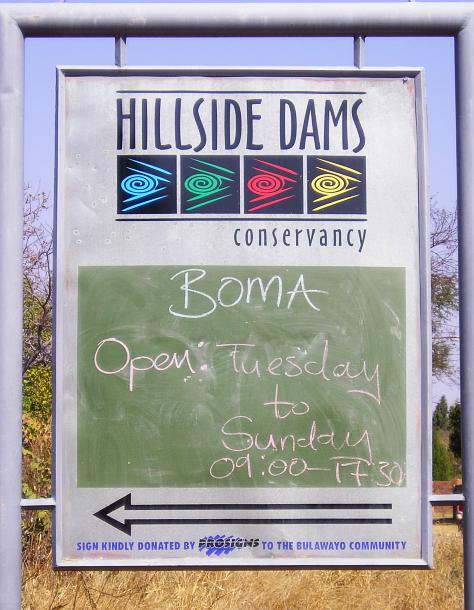 HILLSIDE DAMS
conservancy
BOMA
Open: Tuesday
to
Sunday
09:00-17 30
SIGN KINDLY DONATED BY PROSIGNS TO THE BULAWAYO COMMUNITY